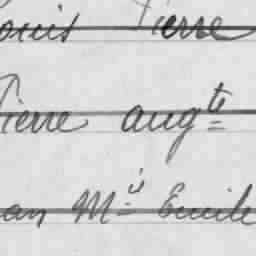 ouis Pierre
Pierre augte
an Mie Emile